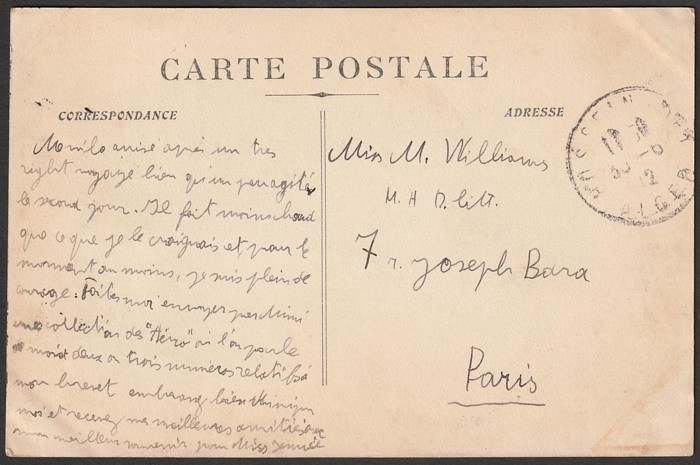 CARTE POSTALE
CORRESPONDANCE
ADRESSE
HUSSEIN-DEY
ALGER
12
Me voilà arrivé après un très
right voyage bien qu'un peu agité
le second jour. Il fait moins chaud
que ce que je le craignais et pour le
moment au moins, je suis plein de
courage. Faites moi envoyer par Mimi
une collection des "Aéro" où l'on parle
moi deux ou trois numéros relatifs à
mon brevet embrassez bien
moi et recevez mes meilleures amitiés
mon meilleur souvenir pour Miss
Miss M. Williams
M. A D. litt.
7 r. Joseph Bara
Paris